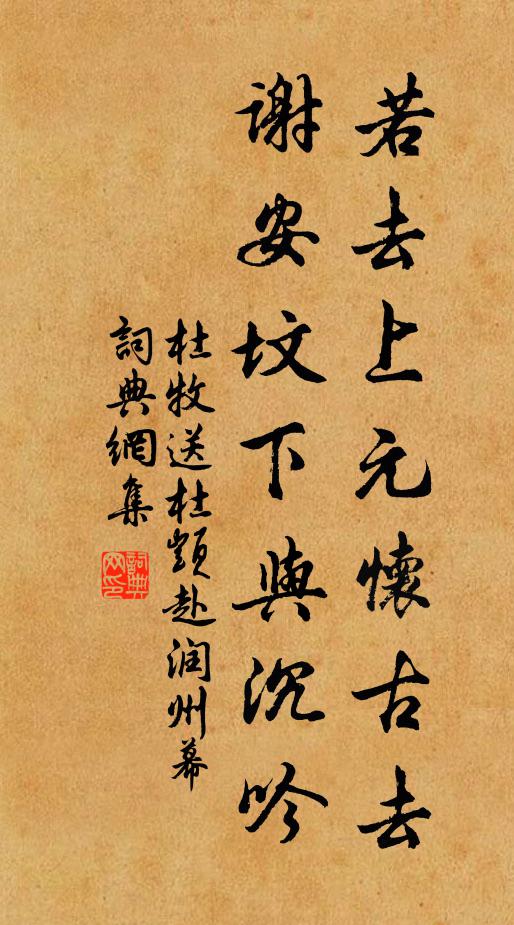 若去上元懷古去
謝安坟下與沉吟
杜牧送杜顗赴润州幕
詞典網集
詞典
网印